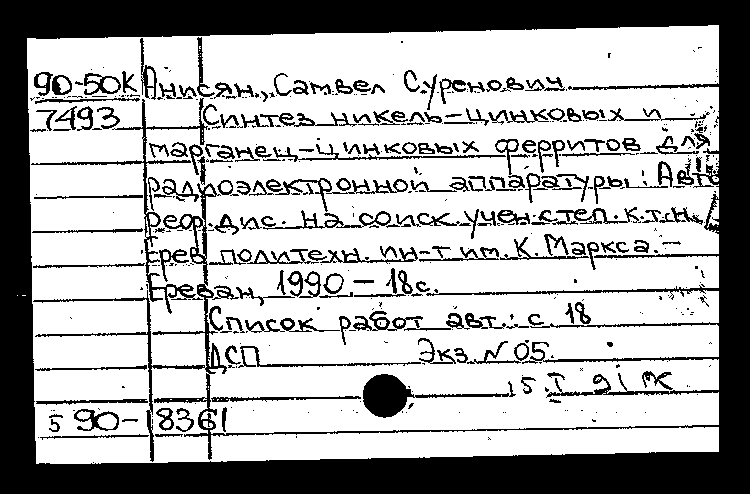 90-50К Анисян, Самвел Суренович
7493 Синтез никель-цинковых и
марганец-цинковых ферритов для
радиоэлектронной аппаратуры: Авто
реф. дис. на соиск. учен. степ. к.т.н.
Ерев. политехн. ин-т им. К. Маркса. –
Ереван, 1990. – 18с.
Список работ авт.: с. 18
ДСП Экз. N 05.
15.I 91
5 90-18361